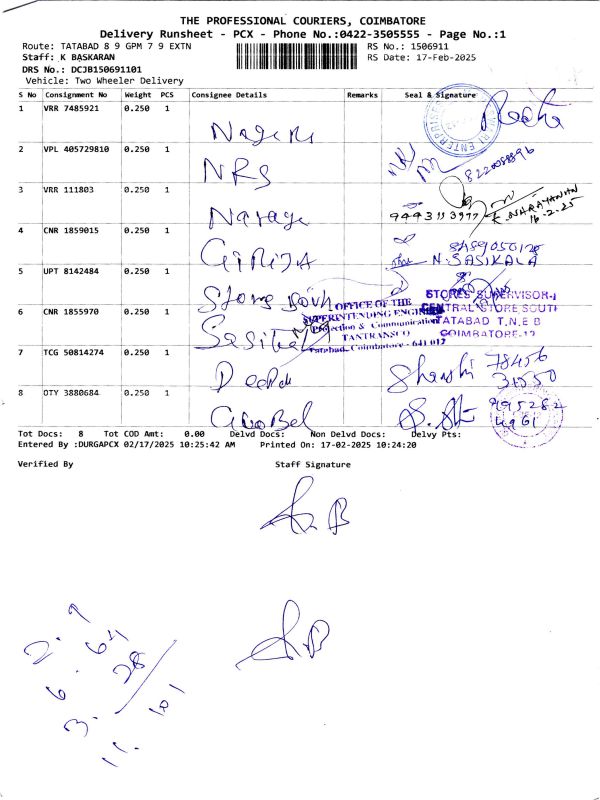 THE PROFESSIONAL COURIERS, COIMBATORE
Delivery Runsheet - PCX - Phone No.:0422-3505555 - Page No.:1
Route: TATABAD 8 9 GPM 7 9 EXTN
RS No.: 1506911
Staff: K BASKARAN
RS Date: 17-Feb-2025
DRS No.: DCJB150691101
Vehicle: Two Wheeler Delivery
S No Consignment No Weight PCS Consignee Details Remarks Seal & Signature
1 VRR 7485921 0.250 1
2 VPL 405729810 0.250 1 NRS 8220058896
3 VRR 111803 0.250 1 9443113977 K. NARAYANAN
16.2.25
4 CNR 1859015 0.250 1 GIRIJA
N. SASIKALA
5 UPT 8142484 0.250 1
OFFICE OF THE
SUPERINTENDING ENGINEER
Protection & Communication
TANTRANSCO
Tatabad, Coimbatore - 641 012
STORES SUPERVISOR-I
CENTRAL STORE SOUTH
TATABAD T.N.E B
COIMBATORE-12
6 CNR 1855970 0.250 1
7 TCG 50814274 0.250 1 Deepa 78456
31550
8 OTY 3880684 0.250 1 995282
4961
Tot Docs: 8 Tot COD Amt: 0.00 Delvd Docs: Non Delvd Docs: Delvy Pts:
Entered By :DURGAPCX 02/17/2025 10:25:42 AM Printed On: 17-02-2025 10:24:20
Verified By Staff Signature
2. 7
6. 64
3. 28
11. 101